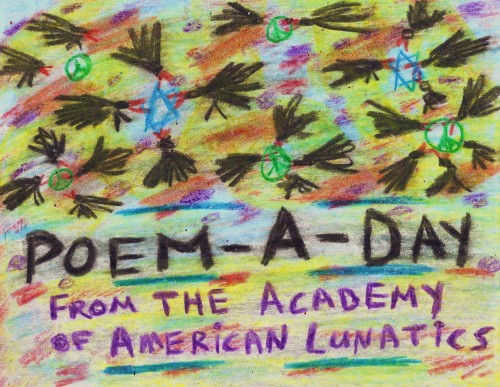 POEM-A-DAY
FROM THE ACADEMY
OF AMERICAN LUNATICS